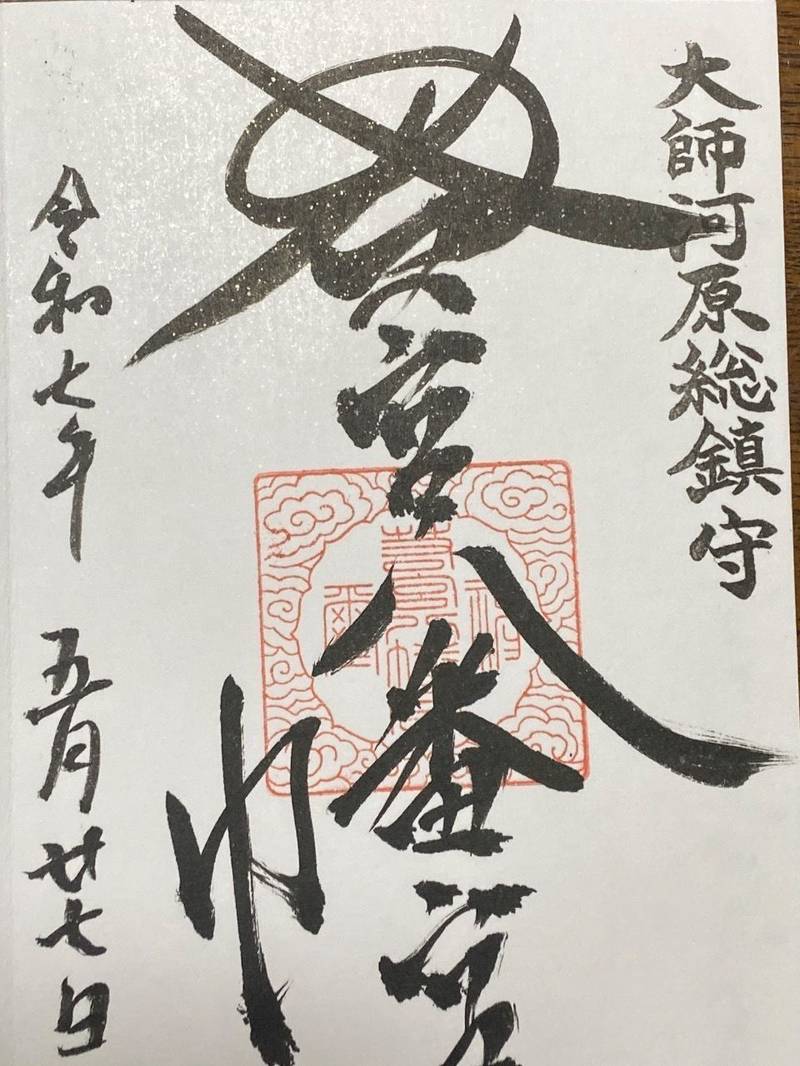 大師河原総鎮守
若宮八幡宮
令和七年 五月廿七日